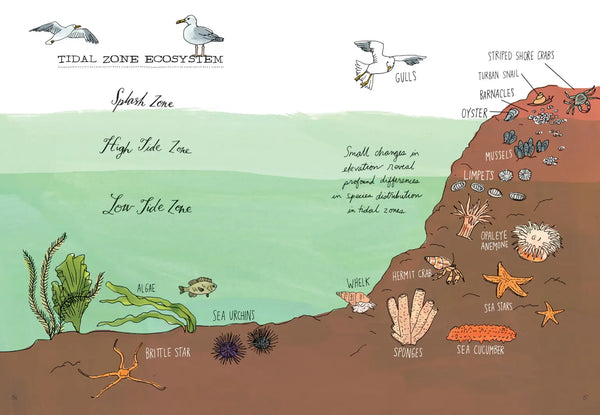 TIDAL ZONE ECOSYSTEM
Splash Zone
High Tide Zone
Low Tide Zone
GULLS
STRIPED SHORE CRABS
TURBAN SNAIL
BARNACLES
OYSTER
MUSSELS
LIMPETS
Small changes in
elevation reveal
profound differences
in species distribution
in tidal zones
OPALEYE
ANEMONE
HERMIT CRAB
WHELK
SEA STARS
ALGAE
SEA URCHINS
BRITTLE STAR
SPONGES
SEA CUCUMBER